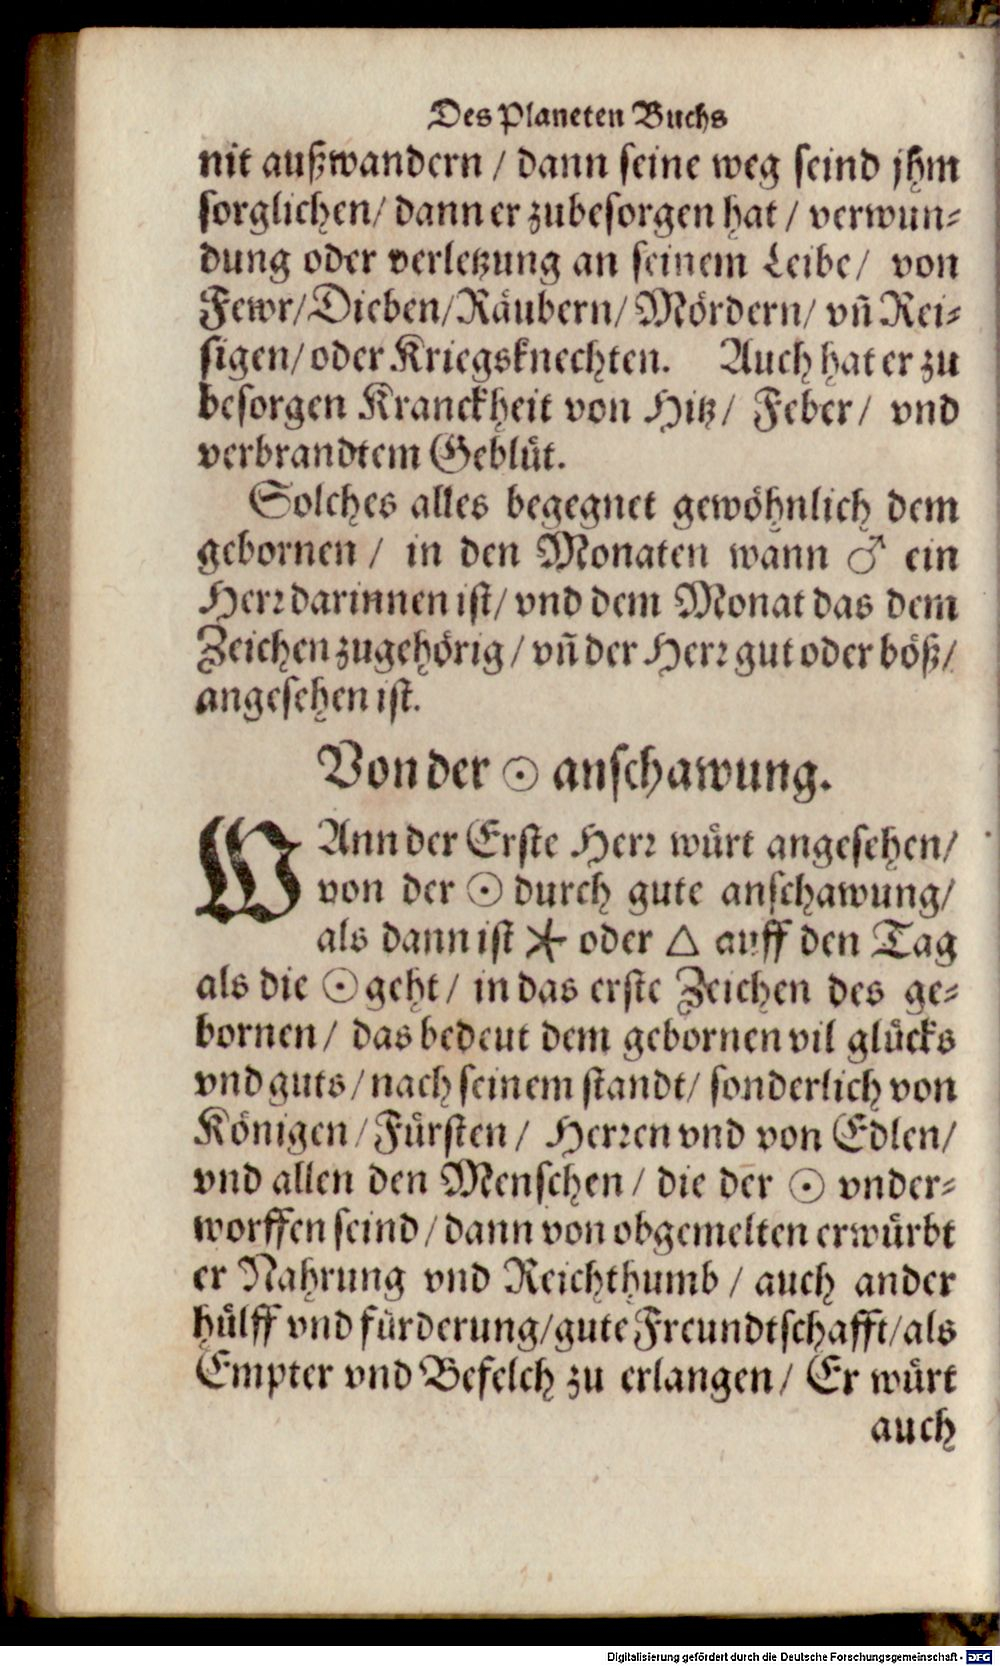 Des Planeten Buchs
nit außwandern / dann seine weg seind jhm
sorglichen/ dann er zubesorgen hat / verwun⸗
dung oder verletzung an seinem Leibe/ von
Fewr/Dieben/Räubern/Mördern/ vñ Rei⸗
sigen/ oder Kriegsknechten. Auch hat er zu
besorgen Kranckheit von Hitz/ Feber/ vnd
verbrandtem Geblüt.
Solches alles begegnet gewöhnlich dem
gebornen / in den Monaten wann ♂ ein
Herꝛ darinnen ist/ vnd dem Monat das dem
Zeichen zugehörig / vñ der Herꝛ gut oder böß/
angesehen ist.
Von der ☉ anschawung.
WAnn der Erste Herꝛ würt angesehen/
von der ☉ durch gute anschawung/
als dann ist ⚹ oder △ auff den Tag
als die ☉ geht / in das erste Zeichen des ge⸗
bornen / das bedeut dem gebornen vil glücks
vnd guts / nach seinem standt/ sonderlich von
Königen / Fürsten / Herꝛen vnd von Edlen/
vnd allen den Menschen / die der ☉ vnder⸗
worffen seind / dann von obgemelten erwürbt
er Nahrung vnd Reichthumb / auch ander
hülff vnd fürderung/gute Freundtschafft/als
Empter vnd Befelch zu erlangen / Er würt
auch
Digitalisierung gefördert durch die Deutsche Forschungsgemeinschaft - DFG